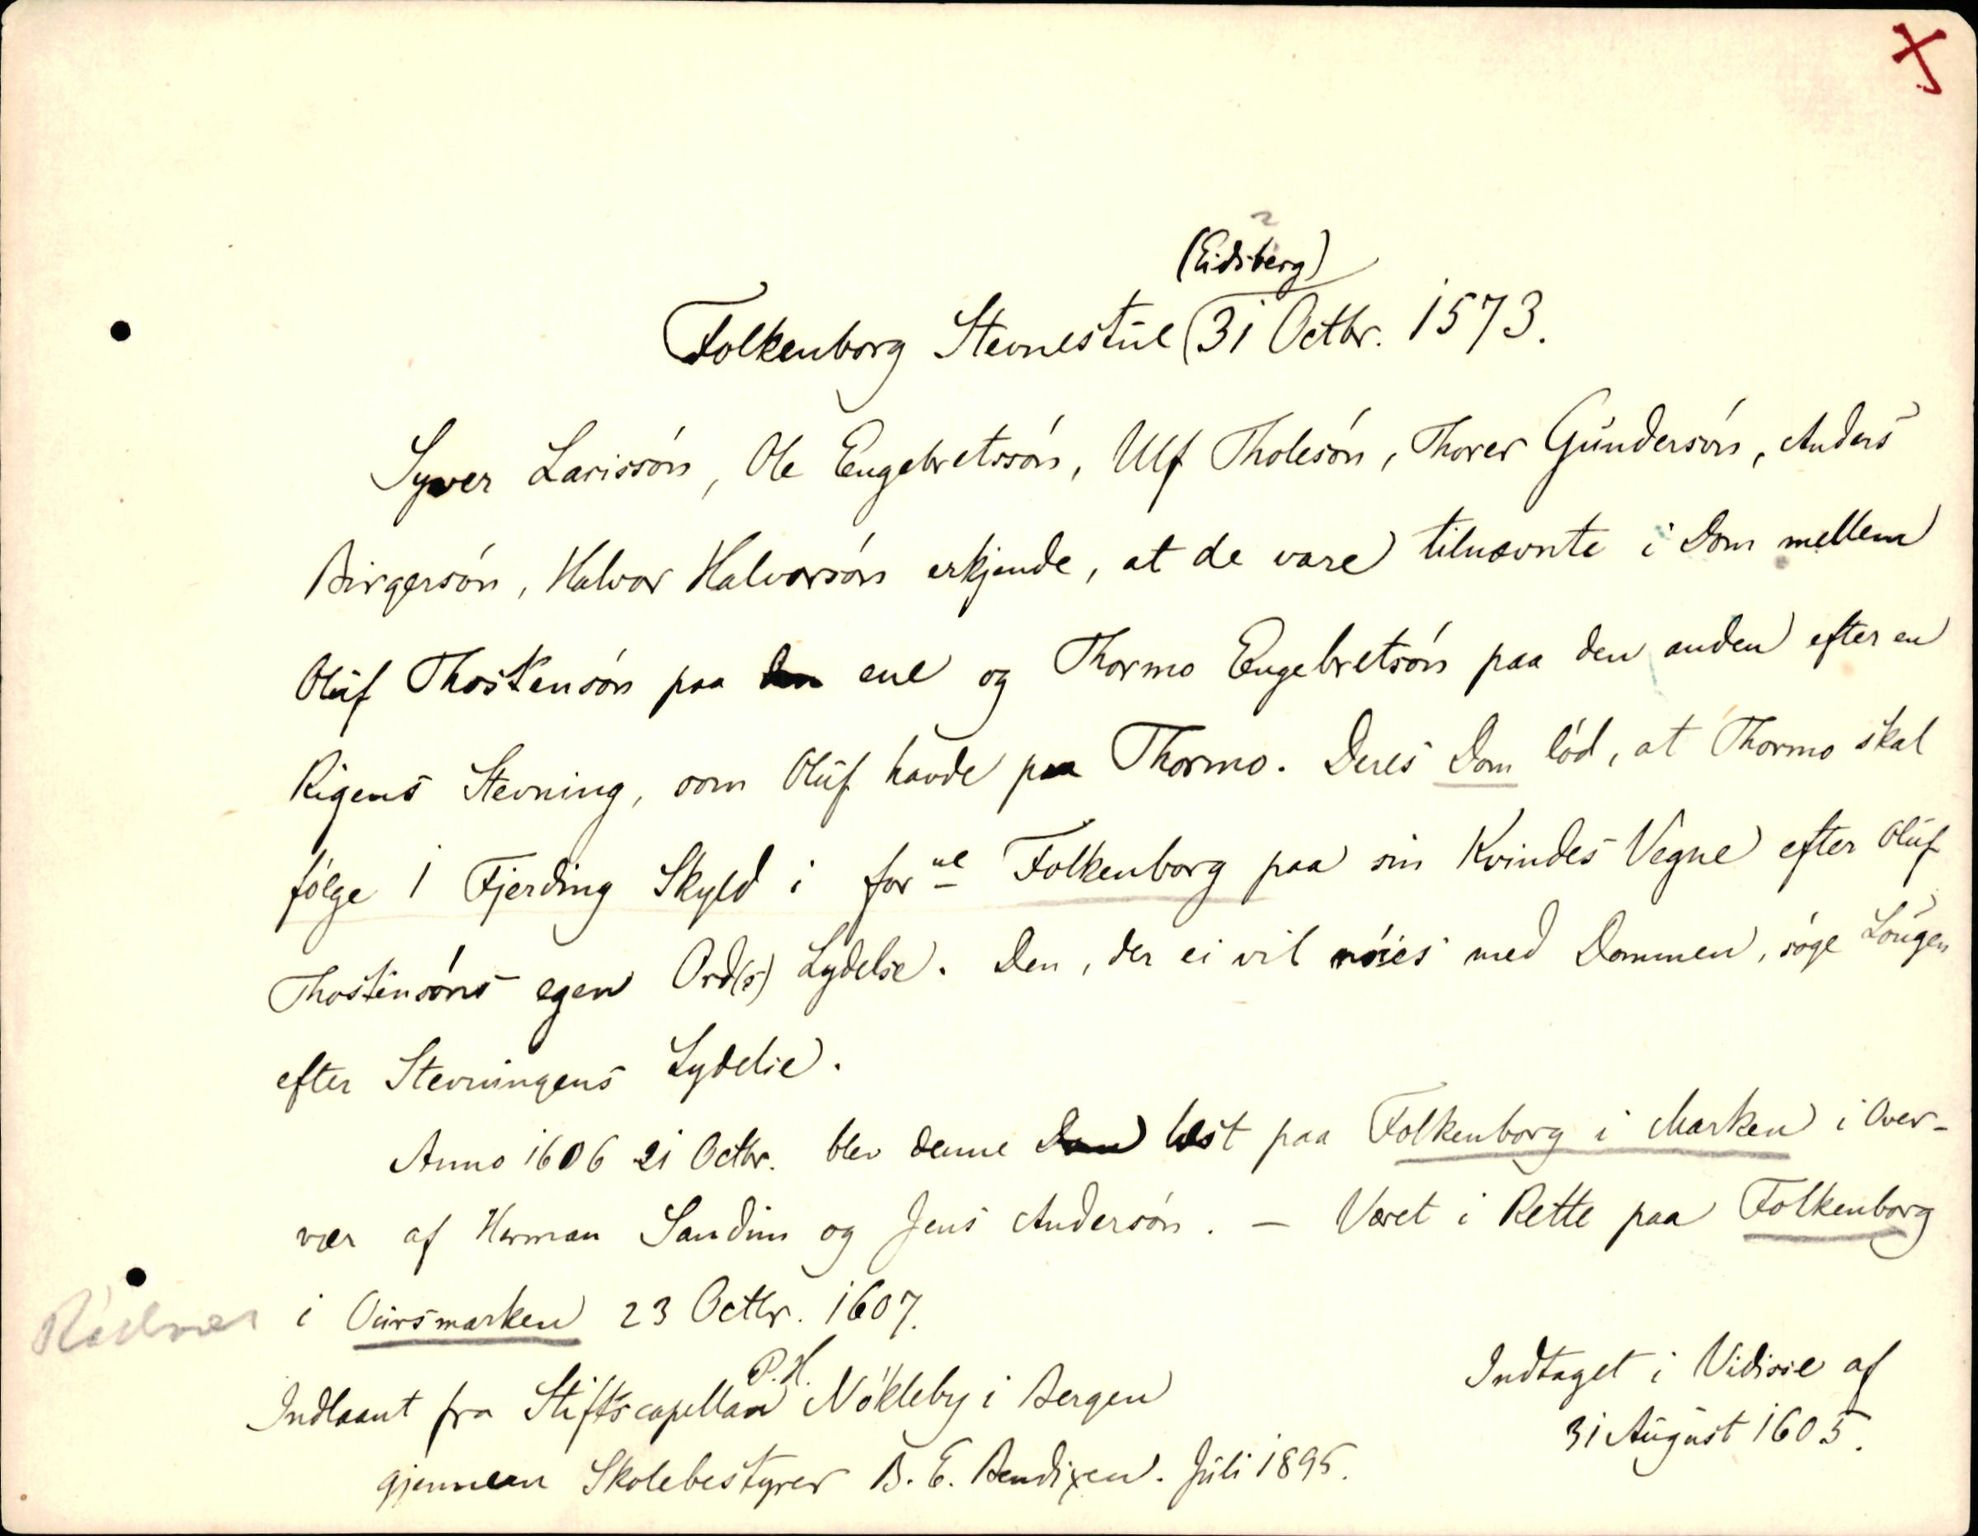 (Eidsberg)
Folkenborg Stevnestue 31 Octbr. 1573.
Syver Larissón, Ole Engebretssón, Ulf Tholesón, Thorer Gundersón, Anders
Birgersón, Halvor Halvorsón erkjende, at de vare tilnævnte i Dom mellem
Oluf Thostensón paa den ene og Thormo Engebretsón paa den anden efter en
Rigens Stevning, som Oluf havde paa Thormo. Deres Dom lód, at Thormo skal
fólge 1 Fjerding Skyld i forne Folkenborg paa sin Kvindes Vegne efter Oluf
Thostensóns egen Ord(s) Lydelse. Den, der ei vil nóies med Dommen, sóge Lougen
efter Stevningens Lydelse.
Anno 1606 21 Octbr. blev denne Dom læst paa Folkenborg i Marken i Over-
vær af Herman Sandim og Jens Andersón. – Været i Rette paa Folkenborg
i Oursmarken 23 Octbr. 1607.
Indlaant fra Stiftscapellan P. H. Nökleby i Bergen
gjennem Skolebestyrer B. E. Bendixen. Juli 1895.
Indtaget i Vidisse af
31 August 1605.